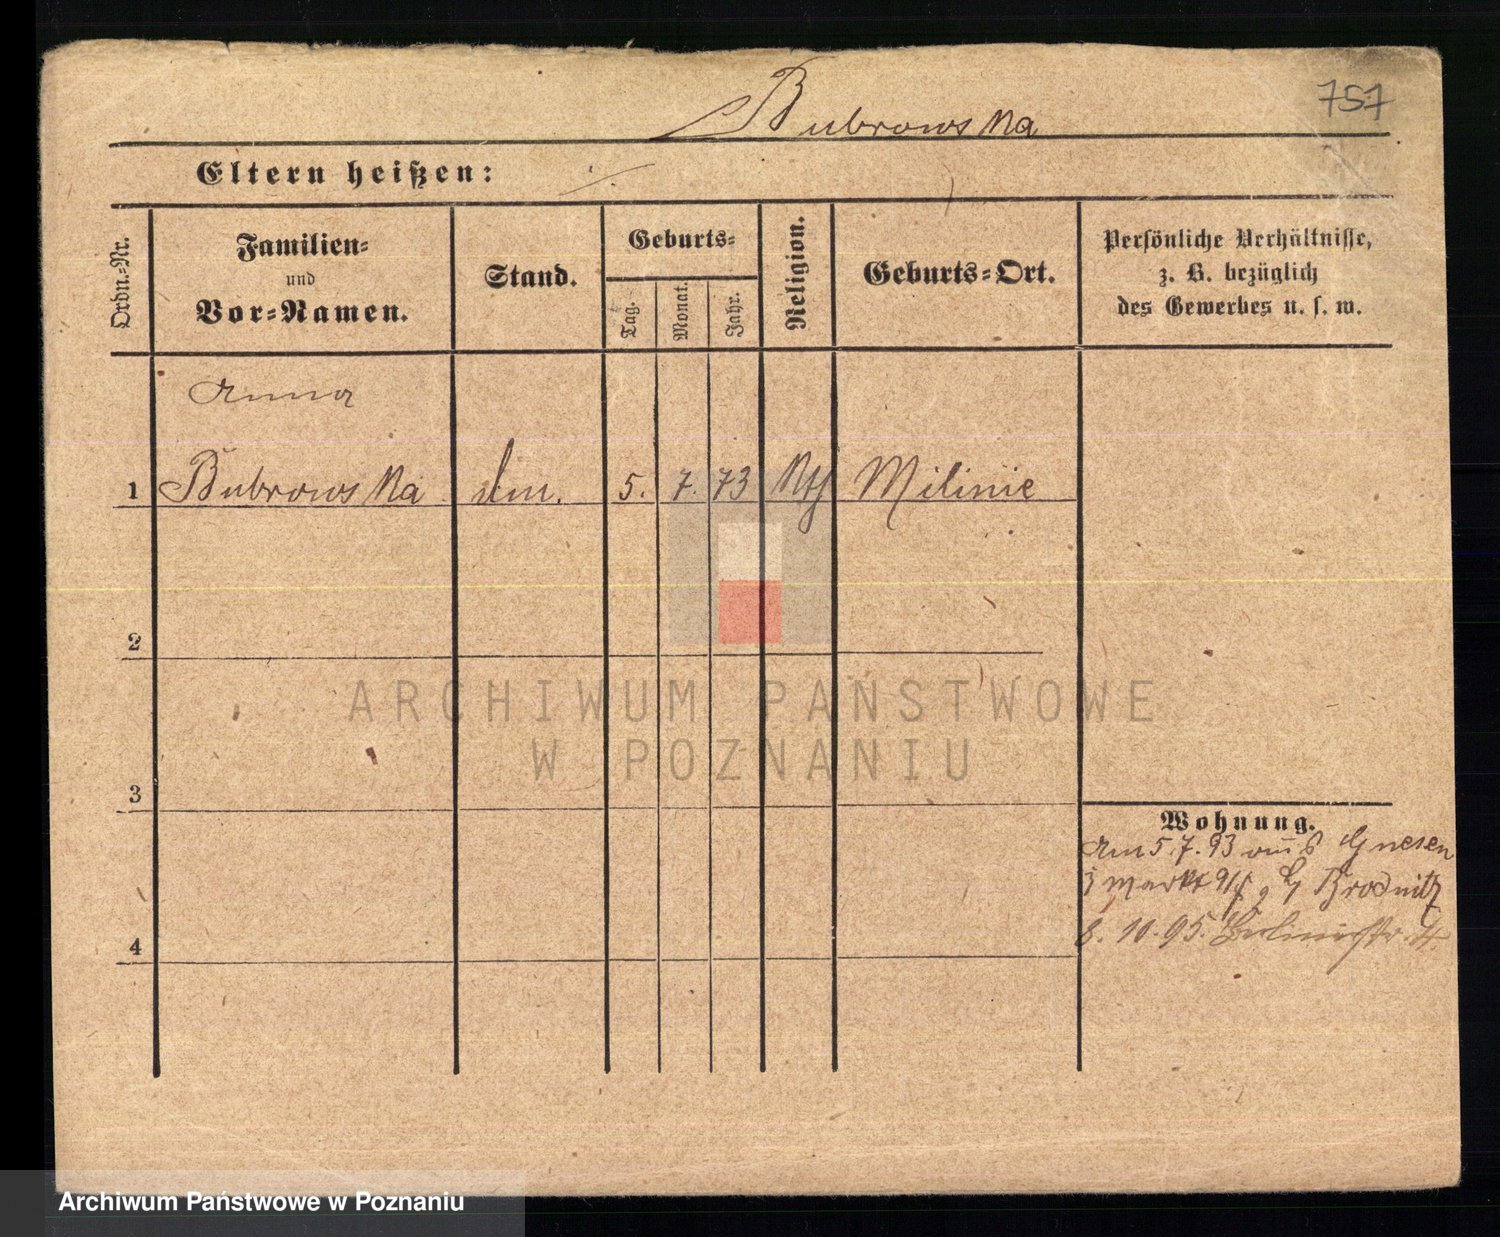 757
Bubrowska
Eltern heißen:
Ordn.-Nr.
Familien-
und
Vor-Namen.
Stand.
Geburts-
Tag.
Monat.
Jahr.
Religion.
Geburts-Ort.
Persönliche Verhältnisse,
z. B. bezüglich
des Gewerbes u. s. w.
Anna
1 Bubrowska 5. 7. 73 Milinie
2
ARCHIWUM PAŃSTWOWE
W POZNANIU
3
Wohnung.
Am 5.7.93 aus Gnesen
Markt 91 Brodnitz
4
8.10.95. 4
Archiwum Państwowe w Poznaniu